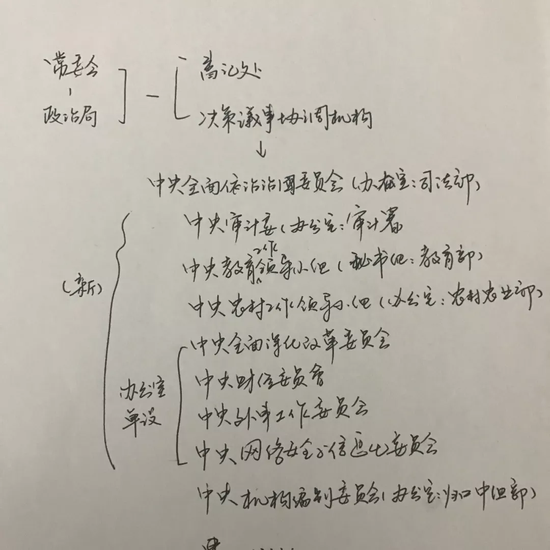 常委会
政治局
书记处
决策议事协调机构
中央全面依法治国委员会(办公室:司法部)
(新)
中央审计委(办公室:审计署
中央教育工作领导小组(秘书组:教育部)
中央农村工作领导小组(办公室:农村农业部)
中央全面深化改革委员会
办公室
单设
中央财经委员会
中央外事工作委员会
中央网络安全与信息化委员会
中央机构编制委员会(办公室:归口中组部)